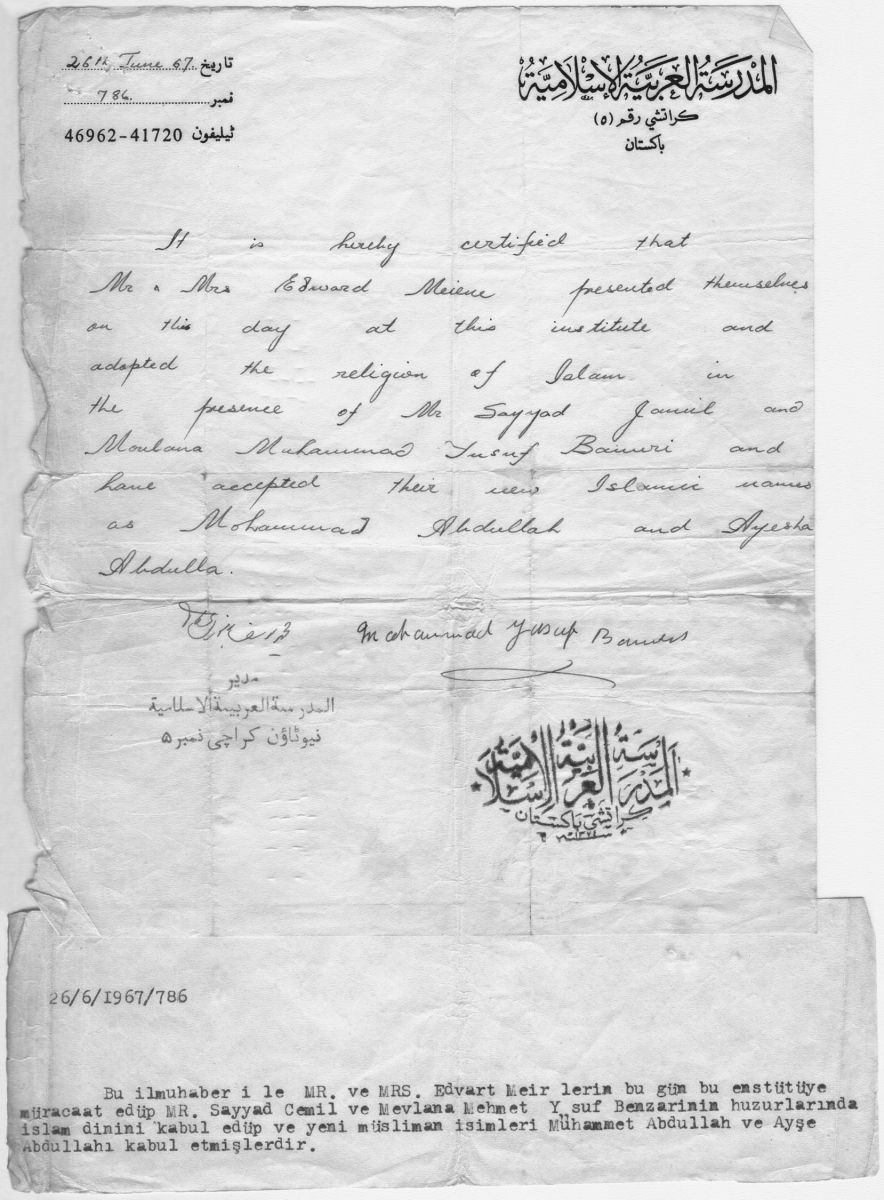 المدرسة العربية الإسلامية
كراتشي رقم (٥)
باكستان
تاريخ 26th June 67.
نمبر 786.
ٹیلیفون 46962-41720
It is hereby certified that
Mr & Mrs Edward Meiene presented themselves
on this day at this institute and
adopted the religion of Islam in
the presence of Mr Sayyad Jamil and
Moulana Muhammad Yusuf Banuri and
have accepted their new Islamic names
as Mohammad Abdullah and Ayesha
Abdulla.
Mohammad Yusuf
مدیر
المدرسة العربية الاسلامية
نیوٹاؤن کراچی نمبر ۵
المدرسة العربية الإسلامية
كراتشي باكستان
26/6/1967/786
Bu ilmuhaber i le MR. ve MRS. Edvart Meir lerin bu gün bu enstütüye
müracaat edüp MR. Sayyad Cemil ve Mevlana Mehmet Y suf Benzarinin huzurlarında
islam dinini kabul edüp ve yeni müsliman isimleri Muhammet Abdullah ve Ayşe
Abdullahı kabul etmişlerdir.